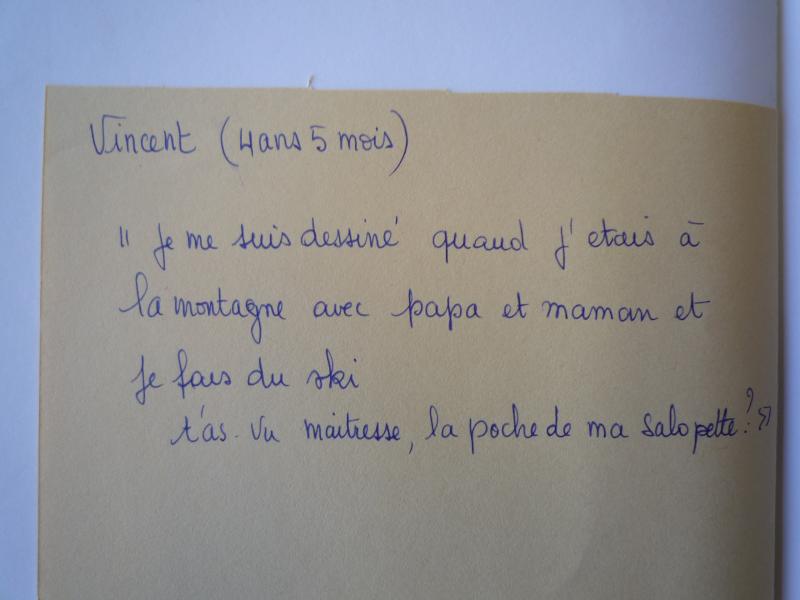 Vincent (4 ans 5 mois)
" Je me suis dessiné quand j'etais à
la montagne avec papa et maman et
je fais du ski
t'as vu maitresse, la poche de ma salopette ? "